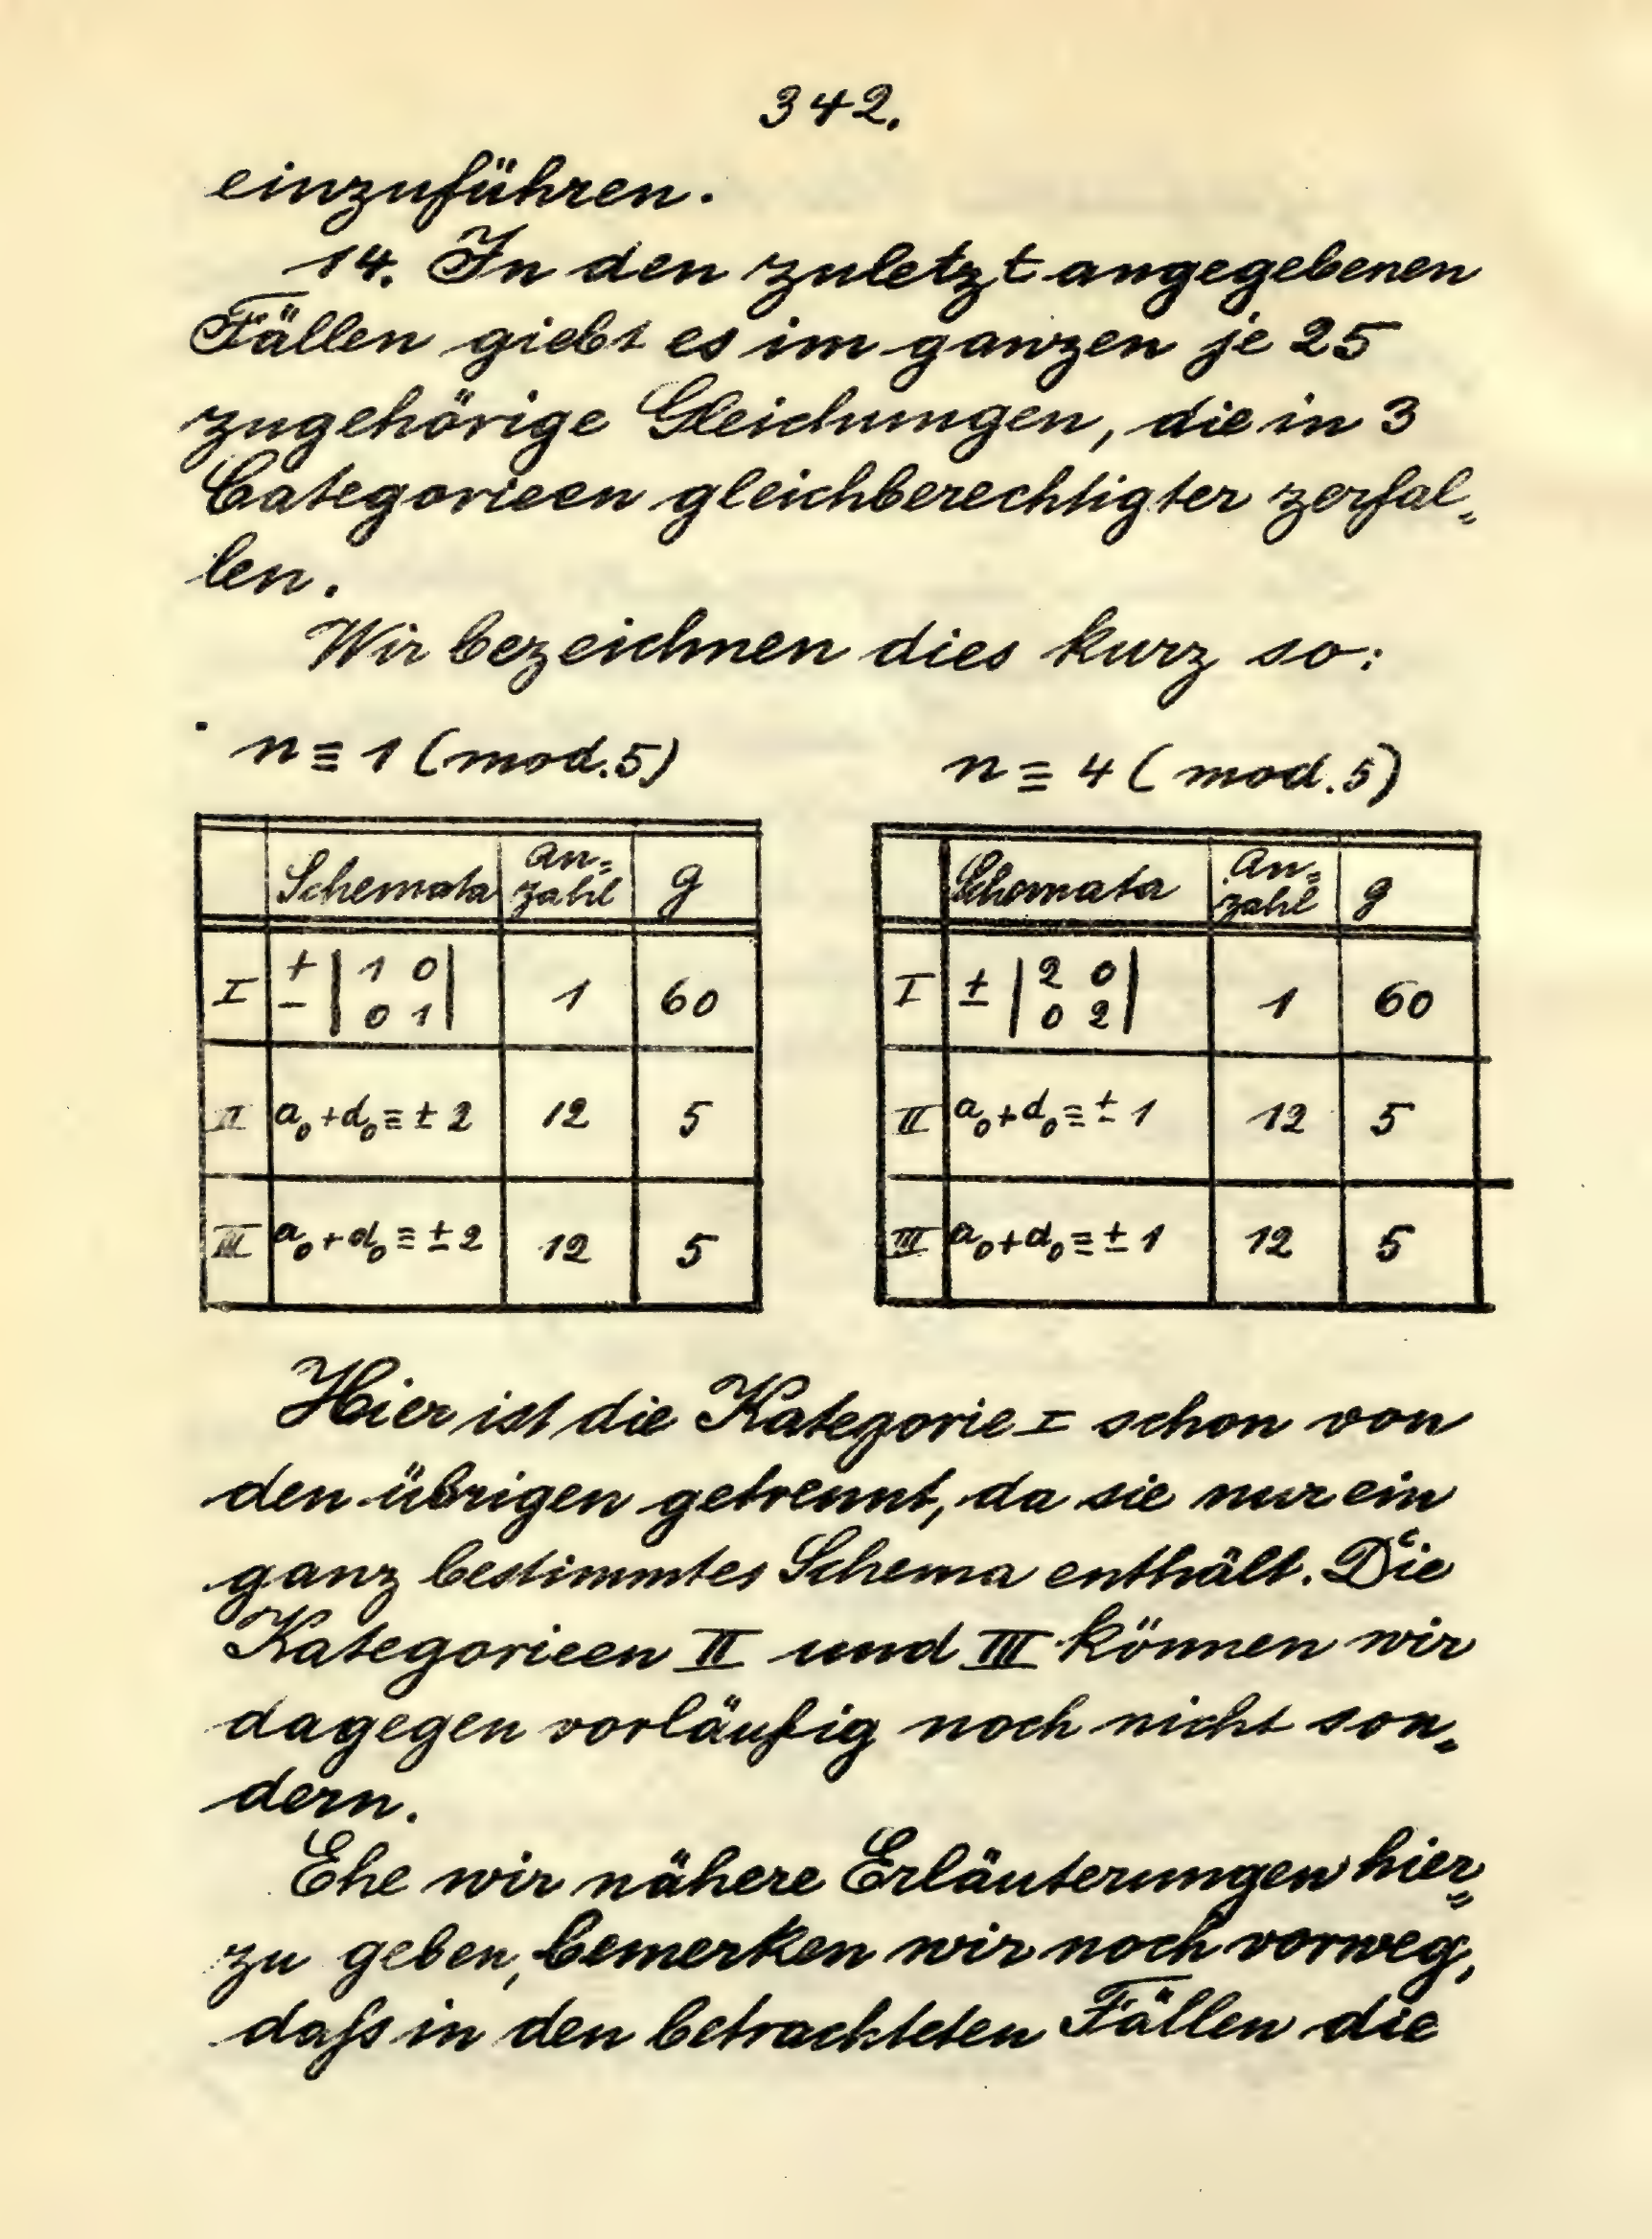 342.
einzuführen.
14. In den zuletzt angegebenen
Fällen giebt es im ganzen je 25
zugehörige Gleichungen, die in 3
Categorieen gleichberechtigter zerfal-
len.
Wir bezeichnen dies kurz so:
n ≡ 1 (mod. 5)
Schemata An-zahl g
I ± | 1 0 | 1 60
| 0 1 |
II a₀+d₀ ≡ ± 2 12 5
III a₀+d₀ ≡ ± 2 12 5
n ≡ 4 (mod. 5)
Schemata An-zahl g
I ± | 2 0 | 1 60
| 0 2 |
II a₀+d₀ ≡ ± 1 12 5
III a₀+d₀ ≡ ± 1 12 5
Hier ist die Kategorie I schon von
den übrigen getrennt, da sie nur ein
ganz bestimmtes Schema enthält. Die
Kategorieen II und III können wir
dagegen vorläufig noch nicht son-
dern.
Ehe wir nähere Erläuterungen hier-
zu geben, bemerken wir noch vorweg,
daſs in den betrachteten Fällen die